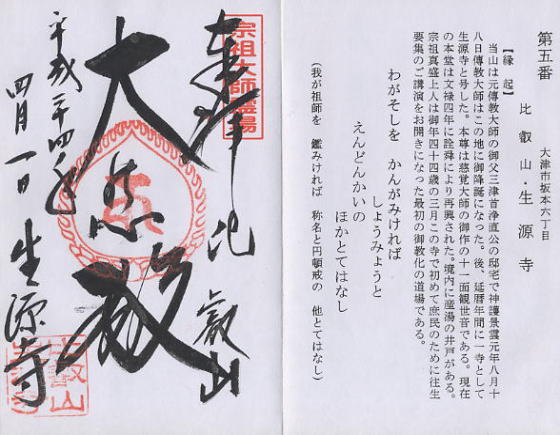 第五番
比叡山・生源寺
大津市坂本六丁目
【縁起】
当山は元傳教大師の御父三津首浄直公の邸宅で神護景雲元年八月十
八日傳教大師はこの地に御降誕になった。後、延暦年間に一寺として
生源寺と号した。本尊は慈覚大師の御作の十一面観世音である。現在
の本堂は文禄四年に詮舜により再興された。境内に産湯の井戸がある。
宗祖真盛上人は御年四十四歳の三月この寺で初めて庶民のために往生
要集のご講演をお開きになった最初の御教化の道場である。
わがそしを　かんがみければ
しょうみょうと
えんどんかいの
ほかとてはなし
（我が祖師を　鑑みければ　称名と円頓戒の　他とてはなし）
宗祖大師霊場
奉拝　比叡山
大悲殿
平成二十四年
四月一日　生源寺